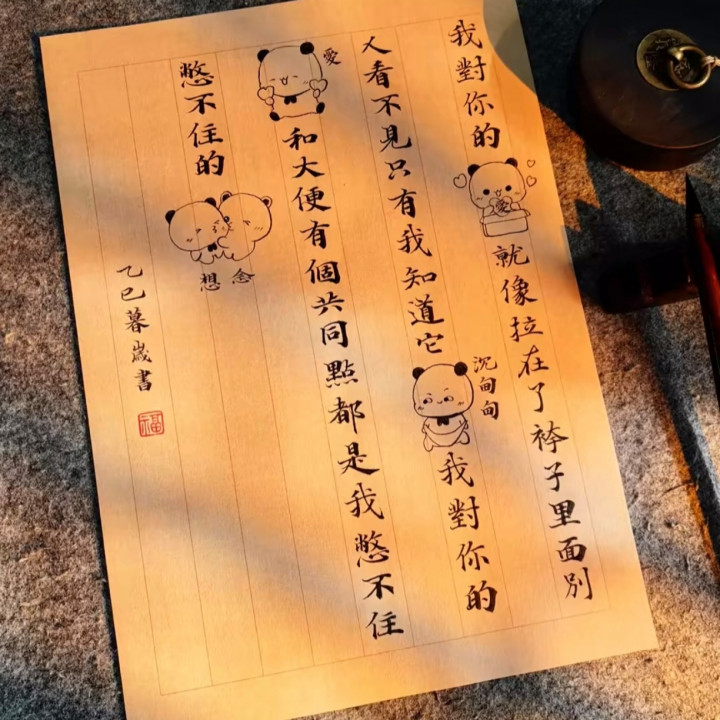 我對你的愛就像拉在了袴子里面別
人看不見只有我知道它沉甸甸我對你的
愛和大便有個共同點都是我憋不住
憋不住的念想
乙巳暮歲書
福